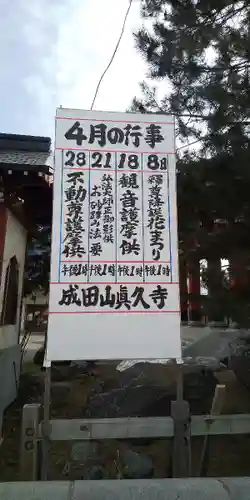 4月の行事
8日 釈尊降誕花まつり 午後1時
18日 観音護摩供 午後1時
21日 弘法大師正御影供
お砂踏み法要 午後1時
28日 不動護摩供 午後1時
成田山眞久寺